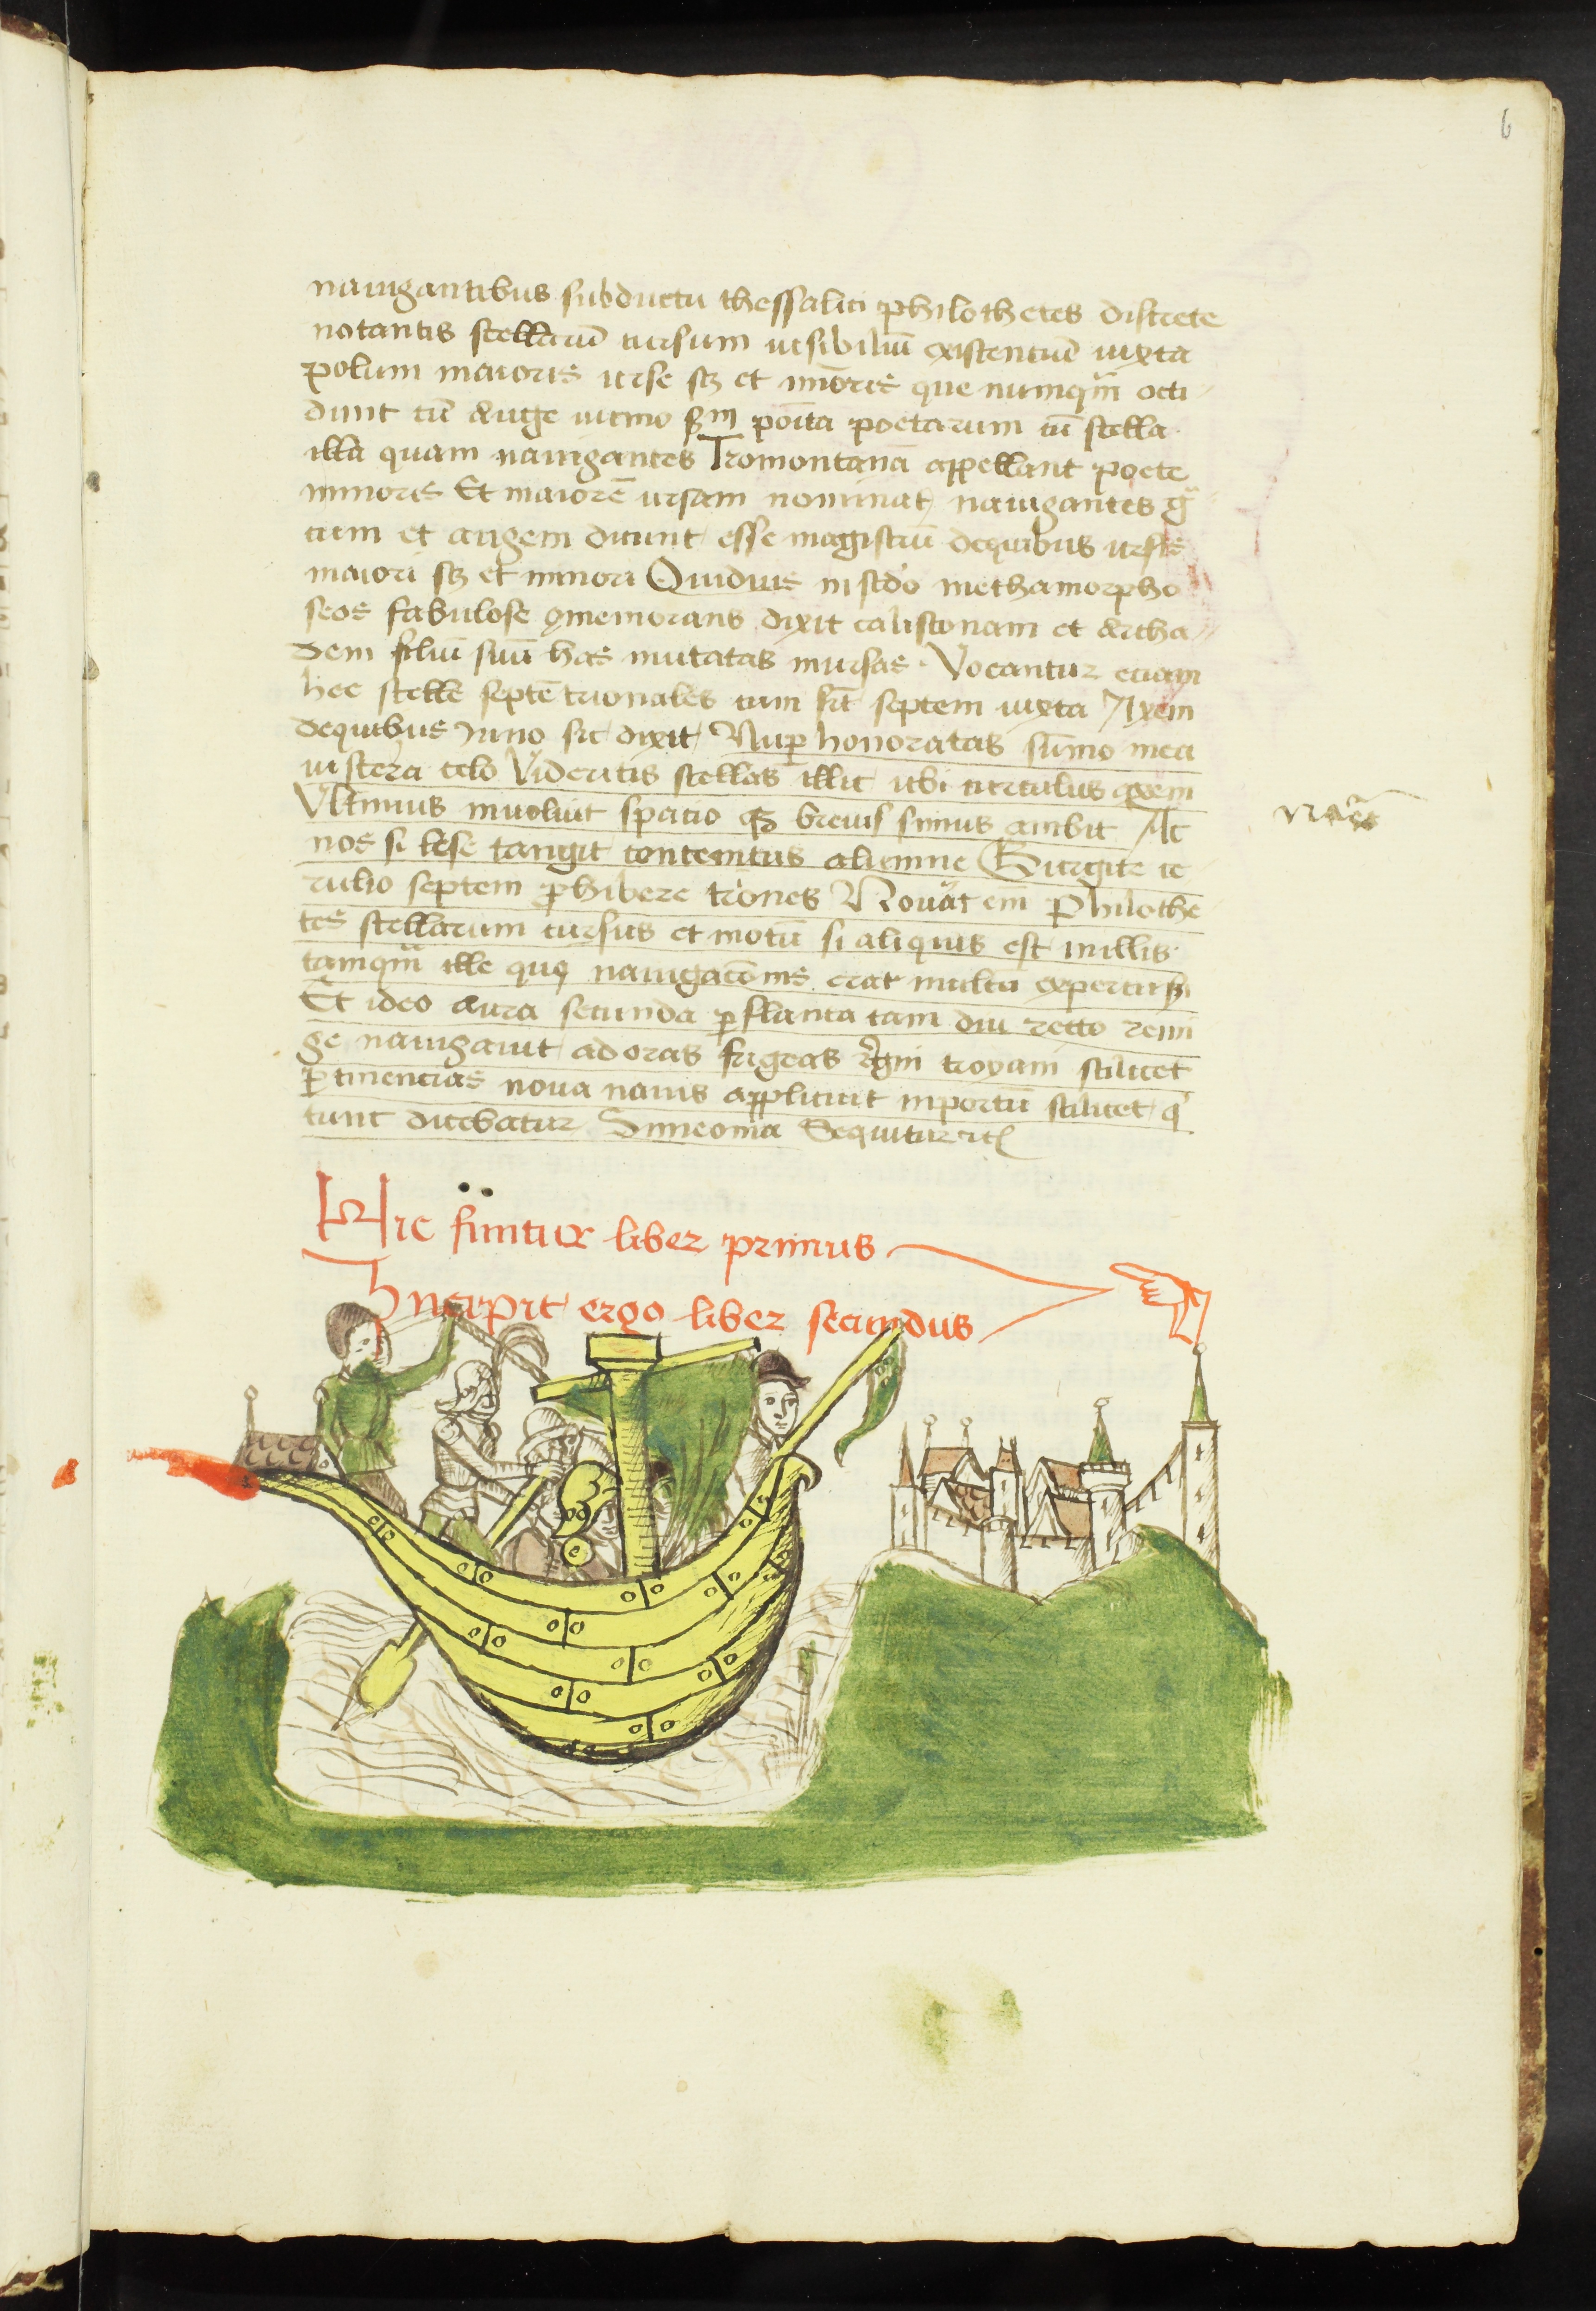 6
nauigantibus subductu thessalici philothetes discrete
notantis stellarū cursum visibiliū existenciū iuxta
polum maioris vrse sz et mīoris que numqm̄ occi
dunt cū Auge vicino scdm poīta poetarum cū stella
illa quam nauigantes Tromontanā appellant poete
minoris Et maiorē vrsam nominat nauigantes
cum et angem dicunt esse magistrū dequibus vrsis
maiori sz et minori Ouidius in scdo methamorpho
seos fabulose ꝯmemorans dixit calistonam et Archa
dem filiū suū has mutatas inursas Vocantur eciam
hec stelle septētrionales cum sīt septem iuxta Axem
dequibus Juno sic dixit Nuꝑ honoratas sūmo mea
viscera celo Videritis stellas illic vbi circulus axem
Vltimus inuoluit spacio qz breuis simus ambit At
nos si lese tangit contemtus alumne Gurgite ce
rulio septem ꝓhibere triones Nouat em̄ Philothe
tes stellarum cursus et motū si aliquis est inillis
tamqm̄ ille qui nauigacōnis erat multū expertus
Et ideo aura secunda ꝑflanta tam diu recto remi
ge nauigauit ad oras frigeas regni troyani scilicet
ꝑtinencias noua nauis applicuit inportū scilicet q
tunc dicebatur Simeonta Sequitur etc
nāes
Hic finitur liber primus
Incipit ergo liber secundus